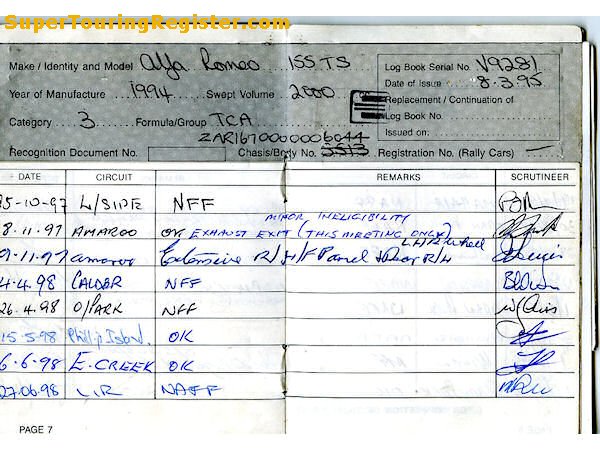 SuperTouringRegister.com
Make / Identity and Model Alfa Romeo 155 TS Log Book Serial No. V9281
Date of Issue 8.3.95
Year of Manufacture 1994 Swept Volume 2000 Replacement / Continuation of
Log Book No.
Category 3 Formula/Group TCA
ZAR16700000006044 Issued on:
Recognition Document No. Chasis/Body No. 5513 Registration No. (Rally Cars) —
DATE CIRCUIT REMARKS SCRUTINEER
5-10-97 L/SIDE NFF
MINOR INELIGIBILITY
8.11.97 AMAROO OK EXHAUST EXIT (THIS MEETING ONLY)
9.11.97 amaroo Extensive R/H/F Panel R/H
4.4.98 CALDER NFF
26.4.98 O/PARK NFF
15.5.98 Phillip Island. OK
6.6.98 E.CREEK OK
27.06.98 L.R NAFF
PAGE 7 PAGE 8